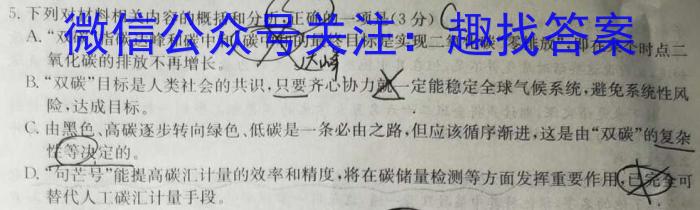 5.下列对材料相关内容的概括和分析,正确的一项是(3分) C
微信公众号关注:趣找答案
A.“双
氧化碳的排放不再增长。
达峰
B.“双碳”目标是人类社会的共识,只要齐心协力就一定能稳定全球气候系统,避免系统性风
险,达成目标。
C.由黑色、高碳逐步转向绿色、低碳是一条必由之路,但应该循序渐进,这是由“双碳”的复杂
性等决定的。
D.“句芒号”能提高碳汇计量的效率和精度,将在碳储量检测等方面发挥重要作用,已完全可
替代人工碳汇计量手段。